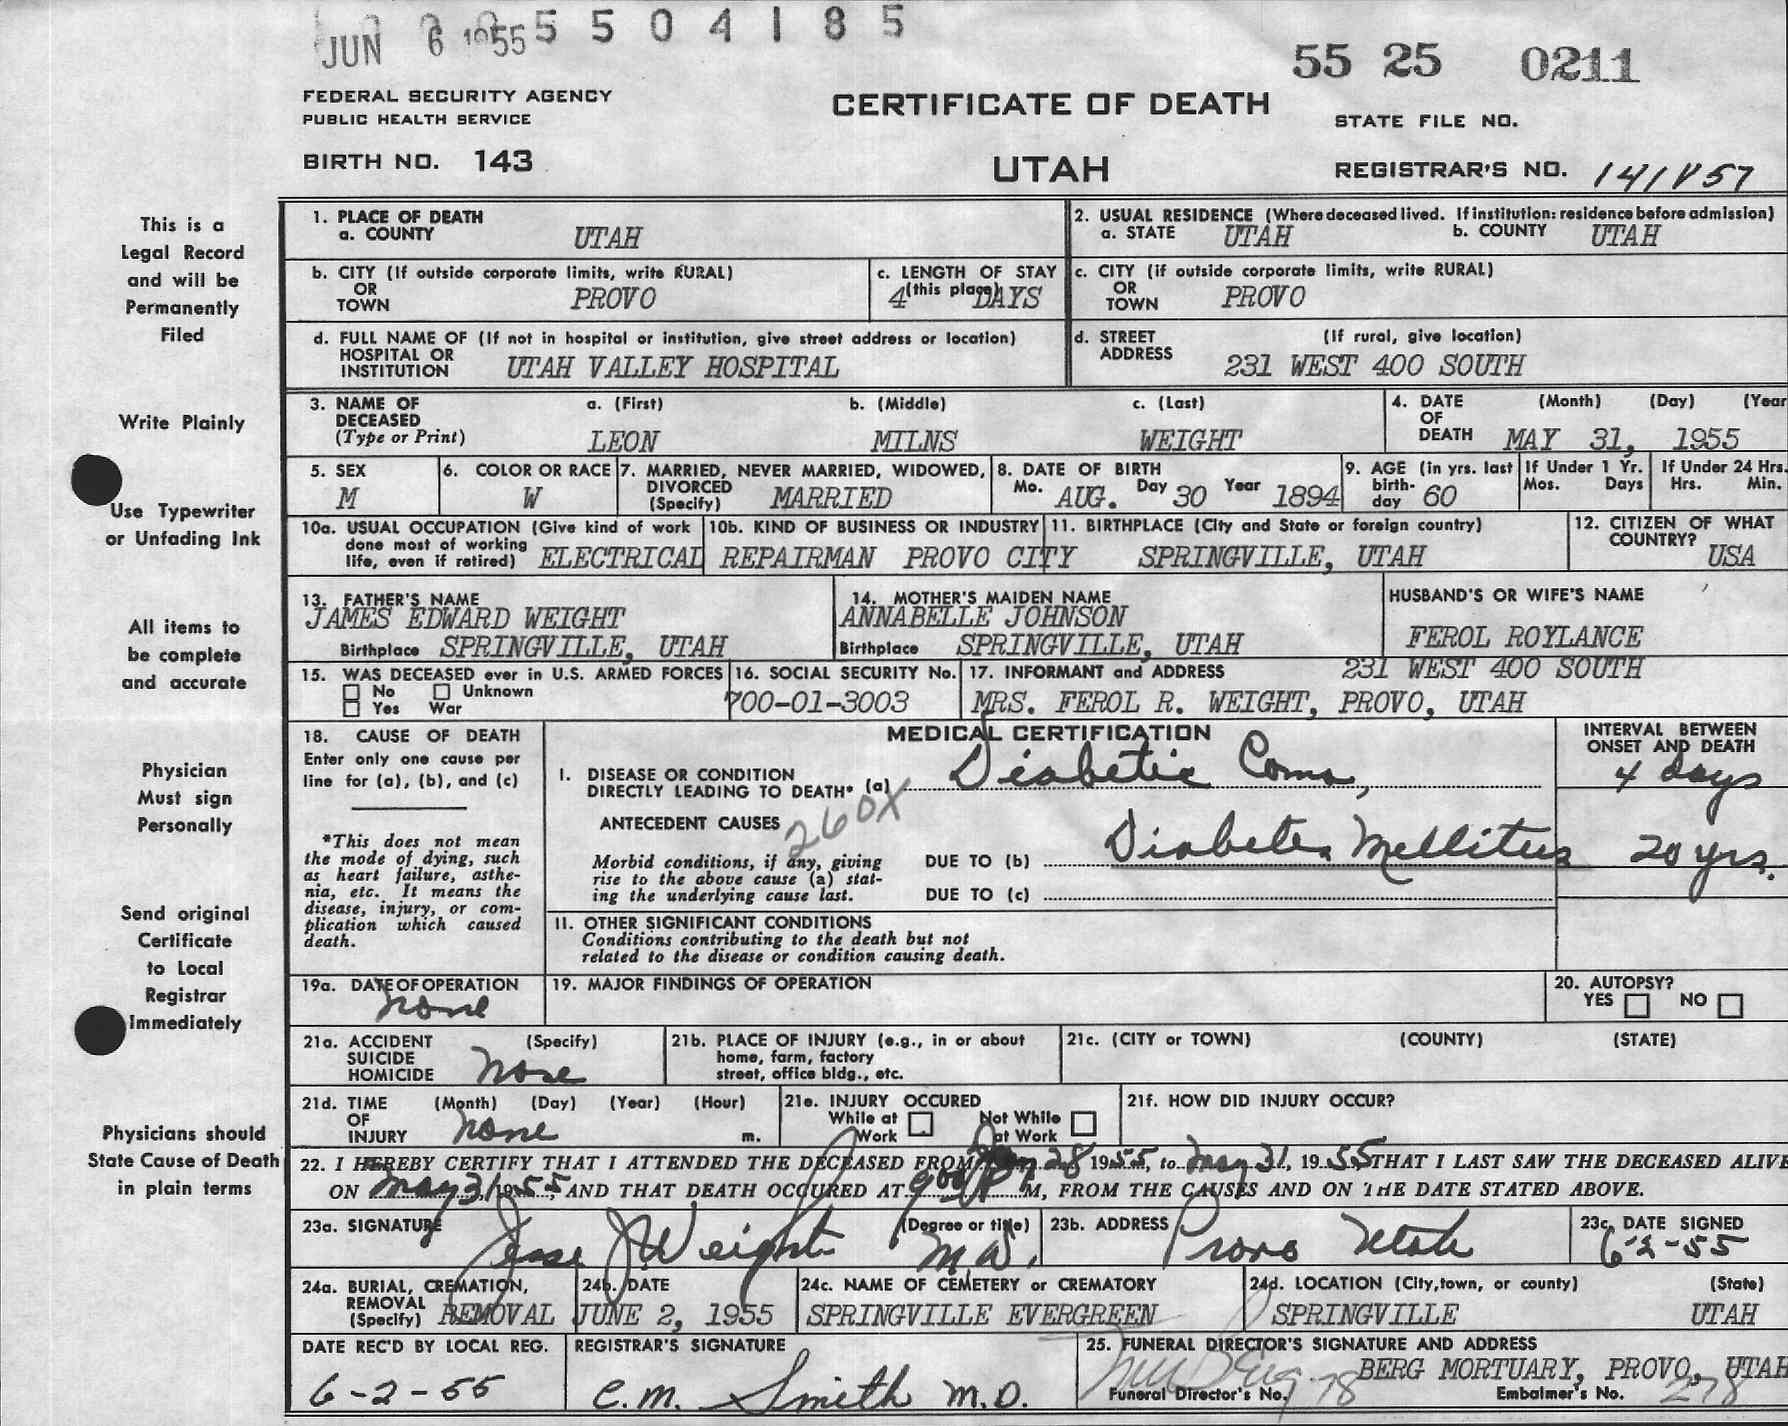 JUN 6 1955 5 5 0 4 1 8 5
55 25 0211
FEDERAL SECURITY AGENCY
PUBLIC HEALTH SERVICE
CERTIFICATE OF DEATH
STATE FILE NO.
BIRTH NO. 143
UTAH
REGISTRAR'S NO. 141 V 57
This is a
Legal Record
and will be
Permanently
Filed
Write Plainly
Use Typewriter
or Unfading Ink
All items to
be complete
and accurate
Physician
Must sign
Personally
Send original
Certificate
to Local
Registrar
immediately
Physicians should
State Cause of Death
in plain terms
1. PLACE OF DEATH
a. COUNTY UTAH
2. USUAL RESIDENCE (Where deceased lived. If institution: residence before admission)
a. STATE UTAH b. COUNTY UTAH
b. CITY (If outside corporate limits, write RURAL)
OR
TOWN PROVO
c. LENGTH OF STAY
(this place) 4 DAYS
c. CITY (if outside corporate limits, write RURAL)
OR
TOWN PROVO
d. FULL NAME OF (If not in hospital or institution, give street address or location)
HOSPITAL OR
INSTITUTION UTAH VALLEY HOSPITAL
d. STREET (If rural, give location)
ADDRESS 231 WEST 400 SOUTH
3. NAME OF a. (First) b. (Middle) c. (Last)
DECEASED
(Type or Print) LEON MILNS WEIGHT
4. DATE (Month) (Day) (Year
OF
DEATH MAY 31, 1955
5. SEX
M
6. COLOR OR RACE
W
7. MARRIED, NEVER MARRIED, WIDOWED,
DIVORCED
(Specify) MARRIED
8. DATE OF BIRTH
Mo. AUG. Day 30 Year 1894
9. AGE (in yrs. last
birth-
day 60
If Under 1 Yr.
Mos. Days
If Under 24 Hrs.
Hrs. Min.
10a. USUAL OCCUPATION (Give kind of work
done most of working
life, even if retired) ELECTRICAL REPAIRMAN
10b. KIND OF BUSINESS OR INDUSTRY
PROVO CITY
11. BIRTHPLACE (City and State or foreign country)
SPRINGVILLE, UTAH
12. CITIZEN OF WHAT
COUNTRY?
USA
13. FATHER'S NAME
JAMES EDWARD WEIGHT
Birthplace SPRINGVILLE, UTAH
14. MOTHER'S MAIDEN NAME
ANNABELLE JOHNSON
Birthplace SPRINGVILLE, UTAH
HUSBAND'S OR WIFE'S NAME
FEROL ROYLANCE
15. WAS DECEASED ever in U.S. ARMED FORCES
No Unknown
Yes War
16. SOCIAL SECURITY No.
700-01-3003
17. INFORMANT and ADDRESS 231 WEST 400 SOUTH
MRS. FEROL R. WEIGHT, PROVO, UTAH
18. CAUSE OF DEATH
Enter only one cause per
line for (a), (b), and (c)
*This does not mean
the mode of dying, such
as heart failure, asthe-
nia, etc. It means the
disease, injury, or com-
plication which caused
death.
MEDICAL CERTIFICATION
INTERVAL BETWEEN
ONSET AND DEATH
I. DISEASE OR CONDITION
DIRECTLY LEADING TO DEATH* (a) Diabetic Coma, 4 days
ANTECEDENT CAUSES 260X
Morbid conditions, if any, giving
rise to the above cause (a) stat-
ing the underlying cause last.
DUE TO (b) Diabetes Mellitus 20 yrs.
DUE TO (c)
II. OTHER SIGNIFICANT CONDITIONS
Conditions contributing to the death but not
related to the disease or condition causing death.
19a. DATE OF OPERATION
none
19. MAJOR FINDINGS OF OPERATION
20. AUTOPSY?
YES NO
21a. ACCIDENT (Specify)
SUICIDE
HOMICIDE none
21b. PLACE OF INJURY (e.g., in or about
home, farm, factory
street, office bldg., etc.
21c. (CITY or TOWN) (COUNTY) (STATE)
21d. TIME (Month) (Day) (Year) (Hour)
OF
INJURY none m.
21e. INJURY OCCURED
While at Work Not While at Work
21f. HOW DID INJURY OCCUR?
22. I HEREBY CERTIFY THAT I ATTENDED THE DECEASED FROM May 28 1955, to May 31, 1955, THAT I LAST SAW THE DECEASED ALIVE
ON May 31 1955, AND THAT DEATH OCCURED AT 900 P M, FROM THE CAUSES AND ON THE DATE STATED ABOVE.
23a. SIGNATURE (Degree or title)
Jesse J Weight M.D.
23b. ADDRESS
Provo Utah
23c. DATE SIGNED
6-2-55
24a. BURIAL, CREMATION,
REMOVAL
(Specify) REMOVAL
24b. DATE
JUNE 2, 1955
24c. NAME OF CEMETERY or CREMATORY
SPRINGVILLE EVERGREEN
24d. LOCATION (City, town, or county) (State)
SPRINGVILLE UTAH
DATE REC'D BY LOCAL REG.
6-2-55
REGISTRAR'S SIGNATURE
C.M. Smith M.D.
25. FUNERAL DIRECTOR'S SIGNATURE AND ADDRESS
BERG MORTUARY, PROVO, UTAH
Funeral Director's No. 78 Embalmer's No. 278